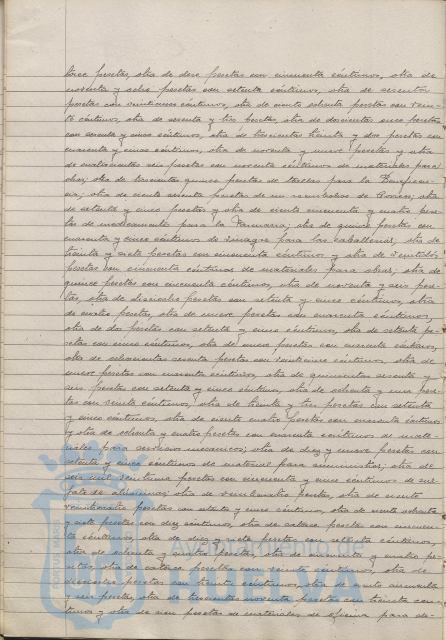 trece pesetas, otra de doce pesetas con cincuenta céntimos, otra de
noventa y ocho pesetas con setenta céntimos, otra de sesenta
pesetas con veinticinco céntimos, otra de ciento ochenta pesetas con vein-
te céntimos, otra de sesenta y tres pesetas, otra de doscientas once pesetas
con sesenta y cinco céntimos, otra de trescientas treinta y dos pesetas con
cuarenta y cinco céntimos, otra de noventa y nueve pesetas y otra
de cuatrocientas seis pesetas con noventa céntimos de materiales para
obras; otra de trescientas quince pesetas de para la Beneficen-
cia; otra de ciento sesenta pesetas de otra
de setenta y cinco pesetas y otra de ciento cincuenta y cuatro pese-
tas de medicamentos para la Farmacia; otra de quince pesetas con
cuarenta y cinco céntimos de vinagre para las caballerías; otra de
treinta y siete pesetas con cincuenta céntimos y otra de veintidós
pesetas con cincuenta céntimos de materiales para obras, otra de
quince pesetas con cincuenta céntimos, otra de noventa y seis pese-
tas, otra de dieciocho pesetas con setenta y cinco céntimos, otra
de cuatro pesetas, otra de nueve pesetas con cuarenta céntimos,
otra de dos pesetas con setenta y cinco céntimos, otra de setenta pe-
setas con cinco céntimos, otra de once pesetas con cincuenta céntimos,
otra de ochocientas sesenta pesetas con veinticinco céntimos, otra de
nueve pesetas con cuarenta céntimos, otra de quinientas sesenta y
seis pesetas con setenta y cinco céntimos, otra de ochenta y una pese-
tas con veinte céntimos, otra de treinta y tres pesetas con setenta
y cinco céntimos, otra de ciento cuatro pesetas con cincuenta céntimos
y otra de ochenta y cuatro pesetas con cuarenta céntimos de mate-
riales para servicios mecánicos; otra de diez y nueve pesetas con
setenta y cinco céntimos de material para suministros; otra de
seis mil pesetas con cincuenta y cinco céntimos de sul-
fato de alúmina; otra de veinticuatro pesetas, otra de ciento
veinticuatro pesetas con setenta y cinco céntimos, otra de ochenta
y siete pesetas con diez céntimos, otra de catorce pesetas con cincuen-
ta céntimos, otra de diez y siete pesetas con setenta céntimos,
otra de ochenta y cuatro pesetas, otra de y cuatro pe-
setas, otra de catorce pesetas con veinte céntimos, otra de
dieciocho pesetas con treinta céntimos, otra de ciento cincuenta
y seis pesetas, otra de trescientas noventa pesetas con treinta cén-
timos y otra de cien pesetas de materiales de oficina para de-
Ayuntamiento de
HUELVA